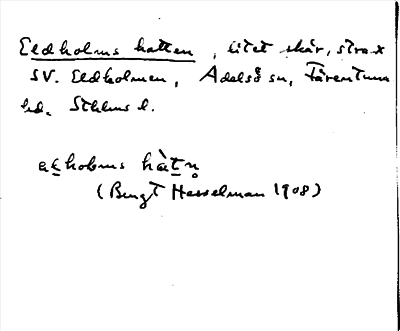 Eldholms hatten, litet skär, strax
SV. Eldholmen, Adelsö sn, Färentuna
hd. Sthlms l.
hòlms hàtn̥
(Bengt Hesselman 1908)